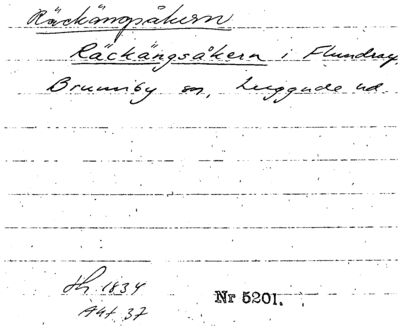 Räckängsåkern
Räckängsåkern i Flundrarp,
Brunnby sn, Luggude hd.
Lh 1834
Akt 37
Nr 5201.